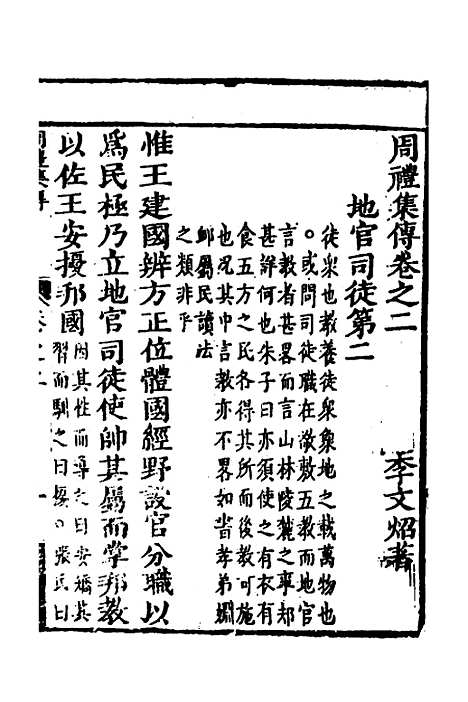 周禮集傳卷之二
李文炤著
地官司徒第二
徒衆也教養徒衆象地之載萬物也
○或問司徒職在敬敷五教而地官
言教者甚畧而言山林陵麓之事却
甚詳何也朱子曰亦須使之有衣有
食五方之民各得其所而後教可施
也况其中言教亦不畧如皆孝弟婣
卹屬民讀法
之類非乎
惟王建國辨方正位體國經野設官分職以
爲民極乃立地官司徒使帥其屬而掌邦教
以佐王安擾邦國
因其性而導之曰安矯其
習而馴之曰擾○張氏曰